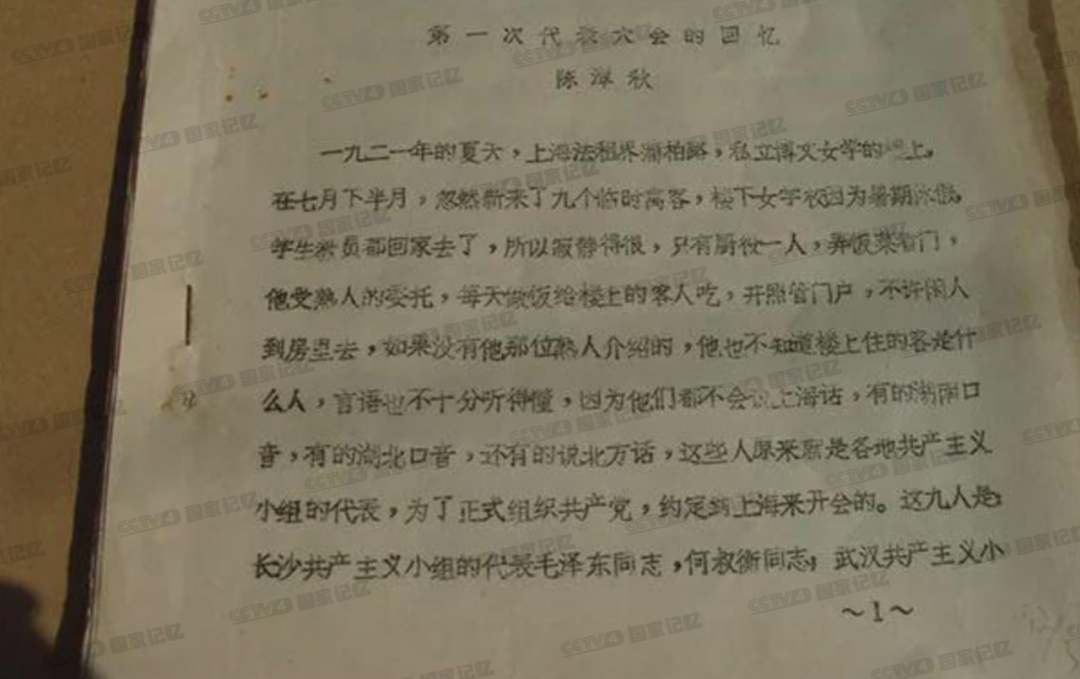 第一次代表大会的回忆
陈潭秋
一九二一年的夏天，上海法租界蒲柏路，私立博文女学的楼上。
在七月下半月，忽然新来了九个临时寓客，楼下女学校因为暑期休假。
学生教员都回家去了，所以寂静得很，只有厨役一人，弄饭菜看门，
他受熟人的委托，每天做饭给楼上的客人吃，并照管门户，不许闲人
到房里去，如果没有他那位熟人介绍的，他也不知道楼上住的客是什
么人，言语也不十分听得懂，因为他们都不会说上海话，有的湖南口
音，有的湖北口音，还有的说北方话，这些人原来就是各地共产主义
小组的代表，为了正式组织共产党，约定到上海来开会的。这九人是：
长沙共产主义小组的代表毛泽东同志，何叔衡同志；武汉共产主义小
～1～
CCTV4 国家记忆